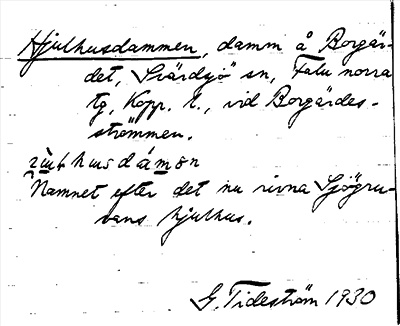 Hjulhusdammen, damm å Borgär-
det, Svärdsjö sn, Falu norra
tg, Kopp. l., vid Borgärdes-
strömmen.
husdámǝn
Namnet efter det nu rivna Sjögru-
vans hjulhus.
G. Tideström 1930